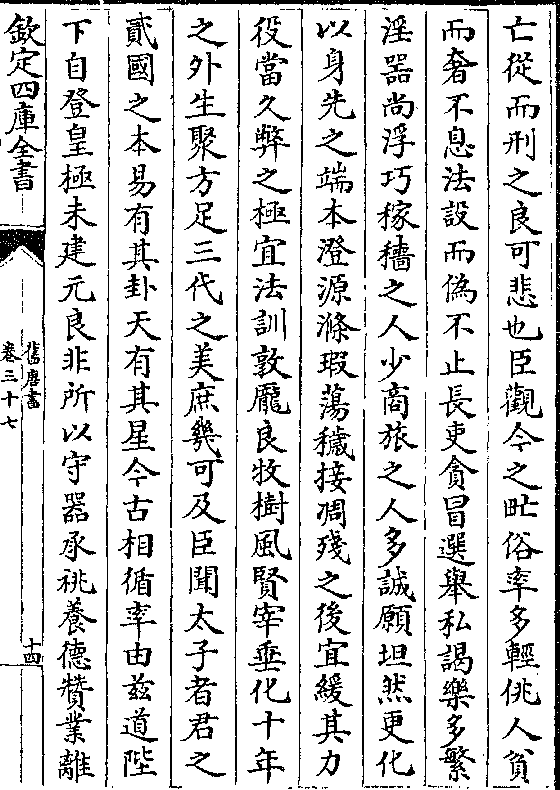 亡從而刑之良可悲也臣觀今之甿俗率多輕佻人貧
而奢不息法設而偽不止長吏貪冒選舉私謁樂多繁
淫器尚浮巧稼穡之人少商旅之人多誠願坦然更化
以身先之端本澄源滌瑕蕩穢接凋殘之後宜緩其力
役當久弊之極宜法訓敦龐良牧樹風賢宰垂化十年
之外生聚方足三代之美庶幾可及臣聞太子者君之
貳國之本易有其卦天有其星今古相循率由兹道陛
下自登皇極未建元良非所以守器承祧養德贊業離
欽定四庫全書
舊唐書
卷三十七
十四